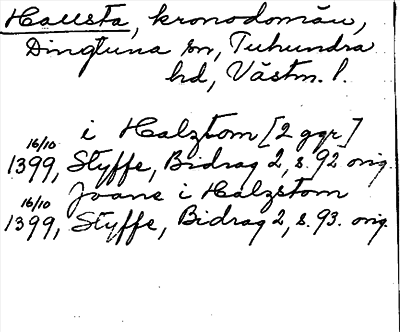 Hallsta, kronodomän,
Dingtuna sn, Tuhundra
hd, Västm. l.
i Halzstom [2 ggr]
16/10
1399, Styffe, Bidrag 2, s. 92 orig.
Joane i Halzstom
16/10
1399, Styffe, Bidrag 2, s. 93. orig.